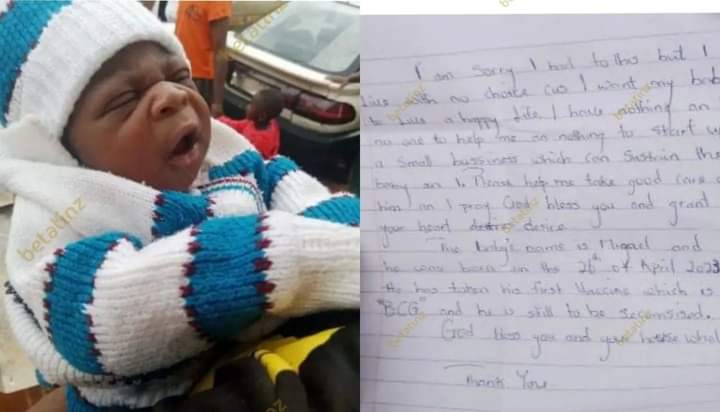 betatinz
I am sorry I had to this but I
live with no choice cus I want my
to live a happy life. I have nothing an
no one to help me an nothing to start
a small bussiness which can sustain
baby an I. Please help me take good care
him an I pray God bless you and grant
your heart desire desire
The baby's name is Miguel and
he was born on the 26th of April 2023
He has taken his first Vaccine which is
"BCG" and he is still to be
God bless you and your house
Thank You